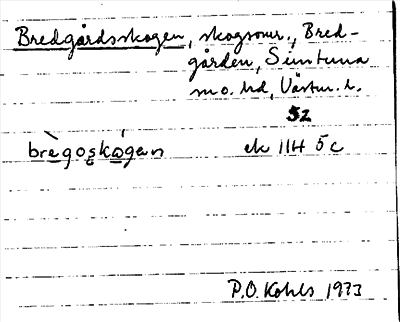 Bredgårdsskogen, skogsomr., Bred-
gården, Simtuna
sn o. hd, Västm. l.
5z
brègoskógan ek 11H 5c
P.O. Kohls 1973